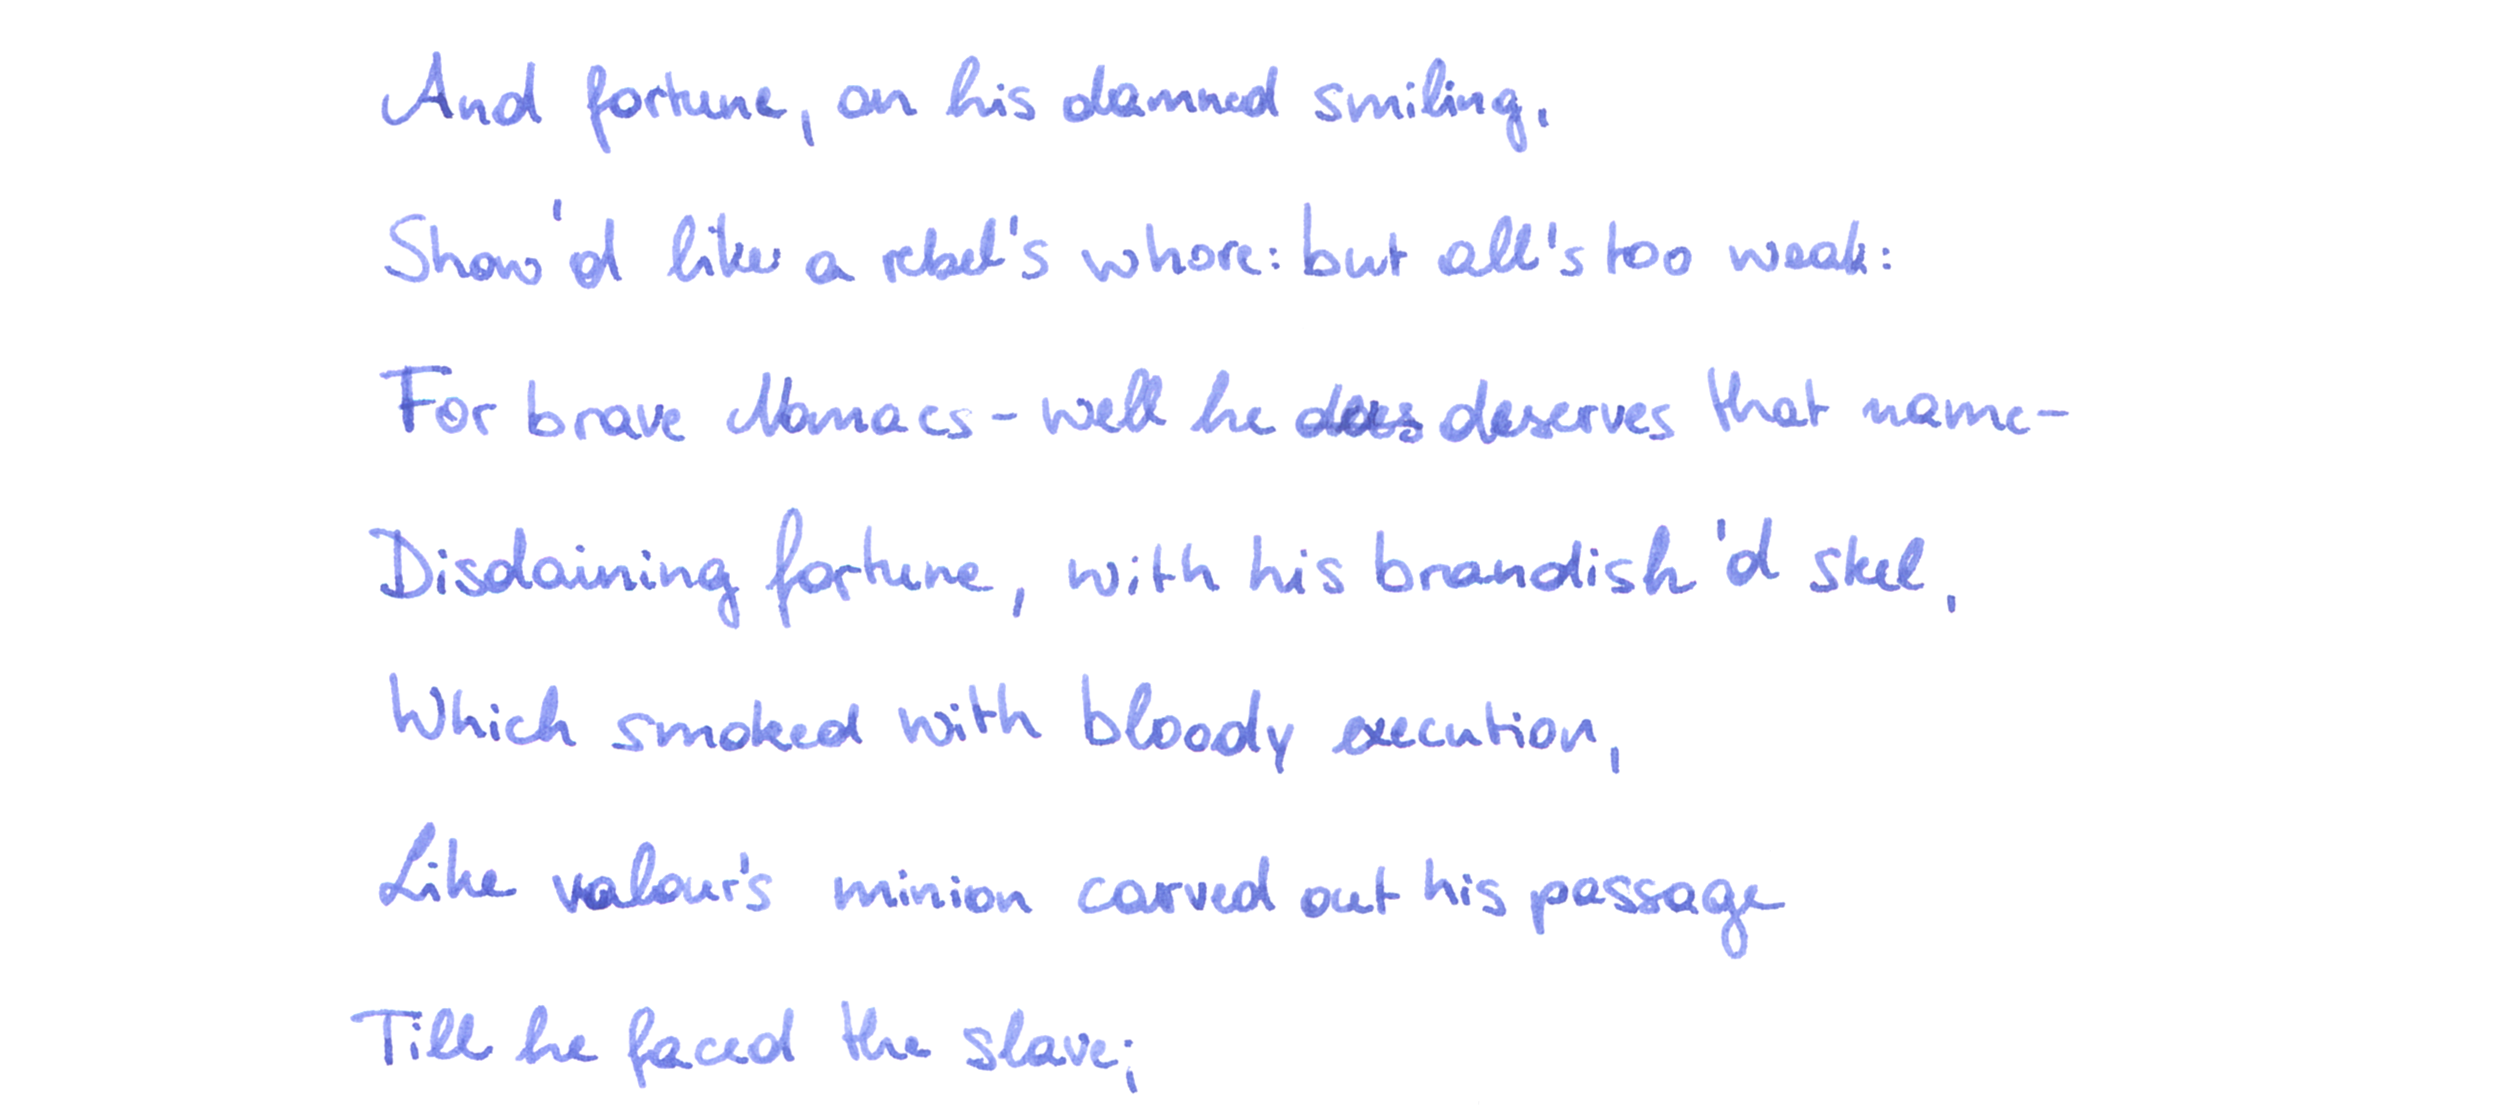 And fortune, on his damned smiling,
Show'd like a rebel's whore: but all's too weak:
For brave Mamacs - well he deserves that name -
Disdaining fortune, with his brandish'd skel,
Which smoked with bloody execution,
Like valour's minion carved out his passage
Till he faced the slave;